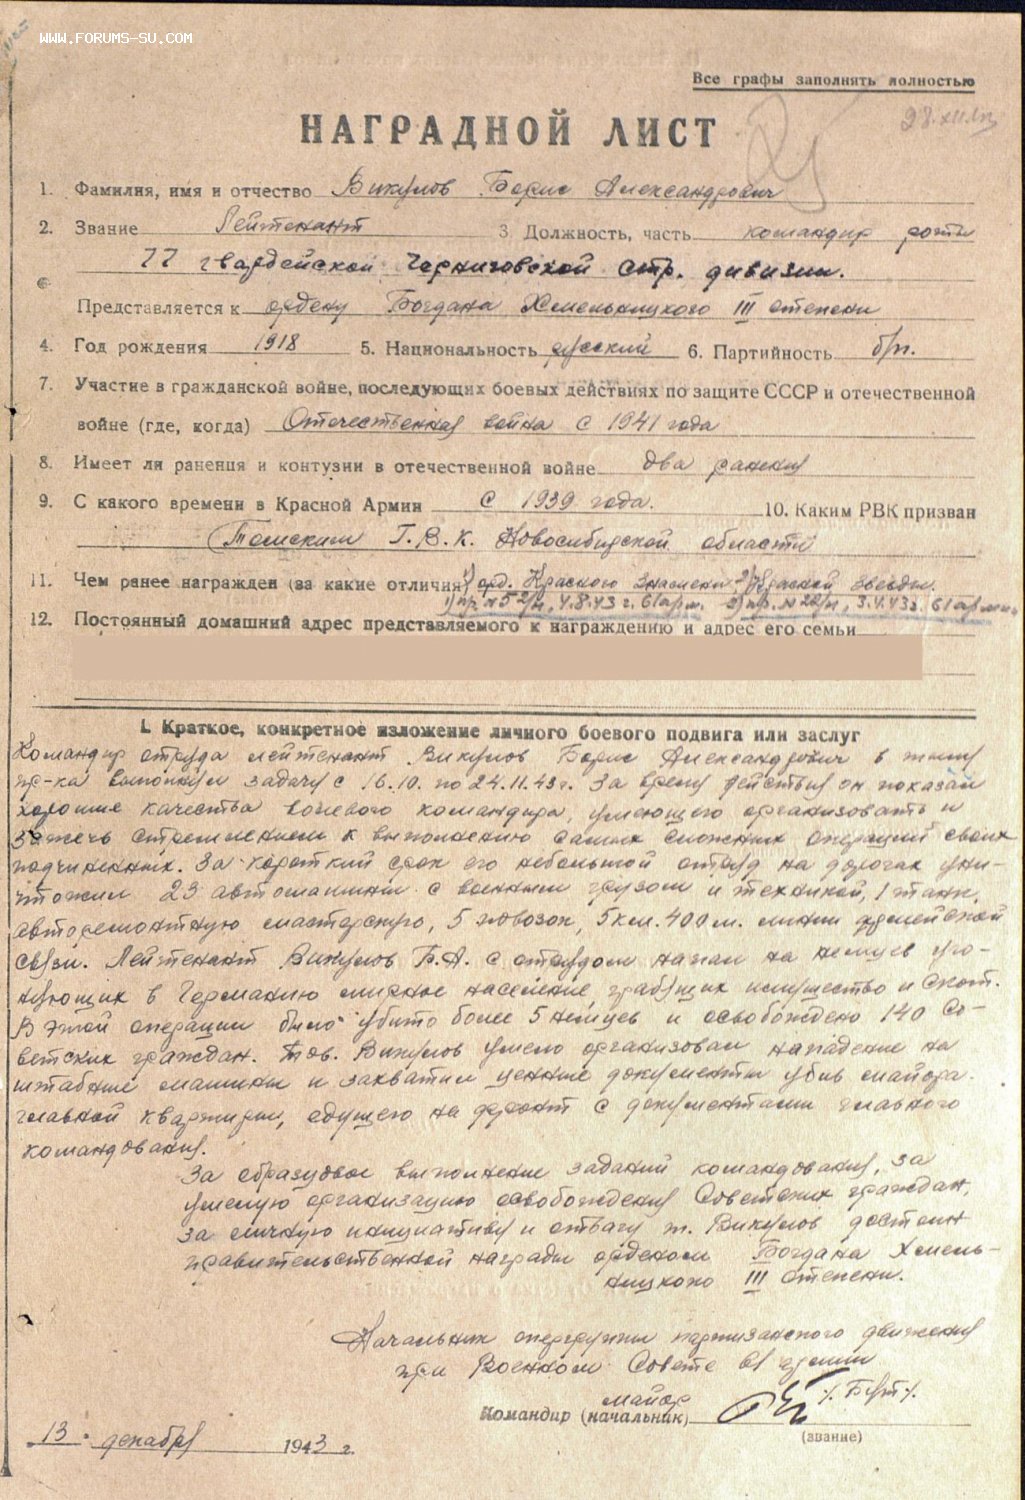 WWW.FORUMS-SU.COM
Все графы заполнять полностью
28.XII
НАГРАДНОЙ ЛИСТ
1. Фамилия, имя и отчество Викулов Борис Александрович
2. Звание Лейтенант 3 Должность, часть командир роты
77 гвардейской Черниговской стр. дивизии.
Представляется к ордену Богдана Хмельницкого III степени
4. Год рождения 1918 5. Национальность русский 6. Партийность б/п.
7. Участие в гражданской войне, последующих боевых действиях по защите СССР и отечественной
войне (где, когда) Отечественная война с 1941 года
8. Имеет ли ранения и контузии в отечественной войне два ранения
9. С какого времени в Красной Армии с 1939 года. 10. Каким РВК призван
Томским Г.В.К. Новосибирской области
11. Чем ранее награжден (за какие отличия) 1) орд. Красного Знамени 2) Красной Звезды.
1) пр. №52/н, 4.8.43 г. 61 арм. 2) пр. №20/н, 3.4.43г. 61 армии
12. Постоянный домашний адрес представляемого к награждению и адрес его семьи
I. Краткое, конкретное изложение личного боевого подвига или заслуг
Командир отряда лейтенант Викулов Борис Александрович в тылу
пр-ка выполнял задачу с 16.10. по 24.11.43г. За время действия он показал
хорошие качества волевого командира, умеющего организовать и
зажечь стремлением к выполнению самых сложных операций своих
подчиненных. За короткий срок его небольшой отряд на дорогах уни-
чтожил 23 автомашины с военным грузом и техникой, 1 танк,
авторемонтную мастерскую, 5 повозок, 5км. 400м. линии армейской
связи. Лейтенант Викулов Б.А. с отрядом напал на немцев уго-
няющих в Германию мирное население, грабящих имущество и скот.
В этой операции было убито более 5 немцев и освобождено 140 Со-
ветских граждан. Тов. Викулов умело организовал нападение на
штабные машины и захватил ценные документы убив майора
главной квартиры, едущего на фронт с документами главного
командования.
За образцовое выполнение заданий командования, за
умелую организацию освобождения Советских граждан,
за личную инициативу и отвагу т. Викулов достоин
правительственной награды орденом Богдана Хмель-
ницкого III степени.
Начальник опергруппы партизанского движения
при Военном Совете 61 армии
майор
Командир (начальник) /. Берт./
(звание)
13. декабря 1943 г.